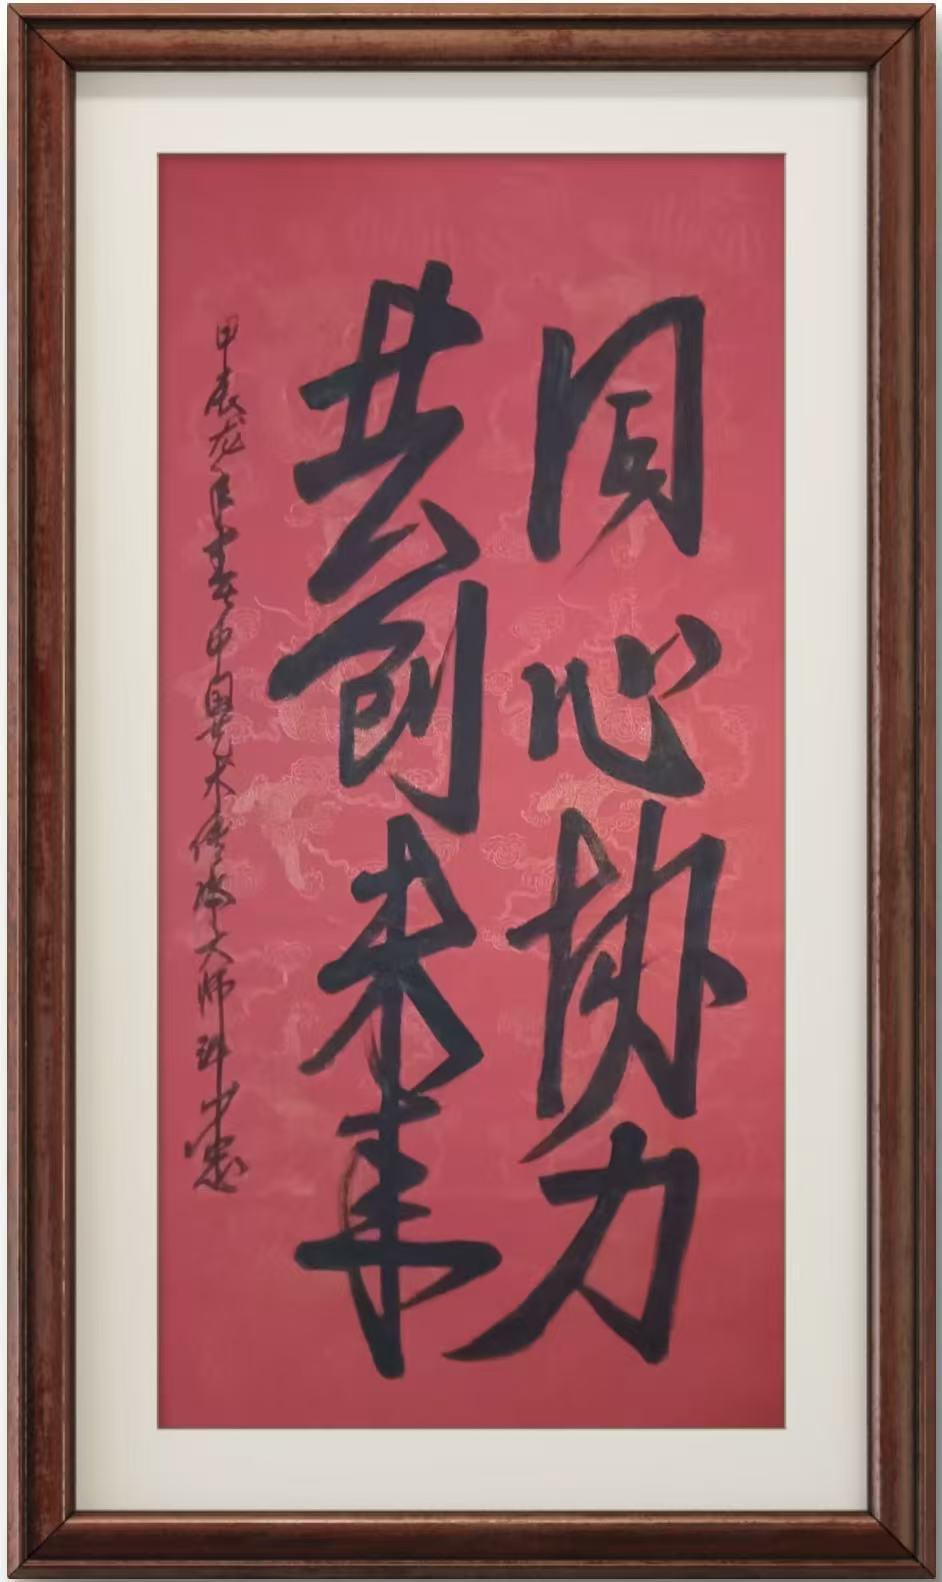 同心协力
共创未来
甲辰龙年春中国艺术传承大师